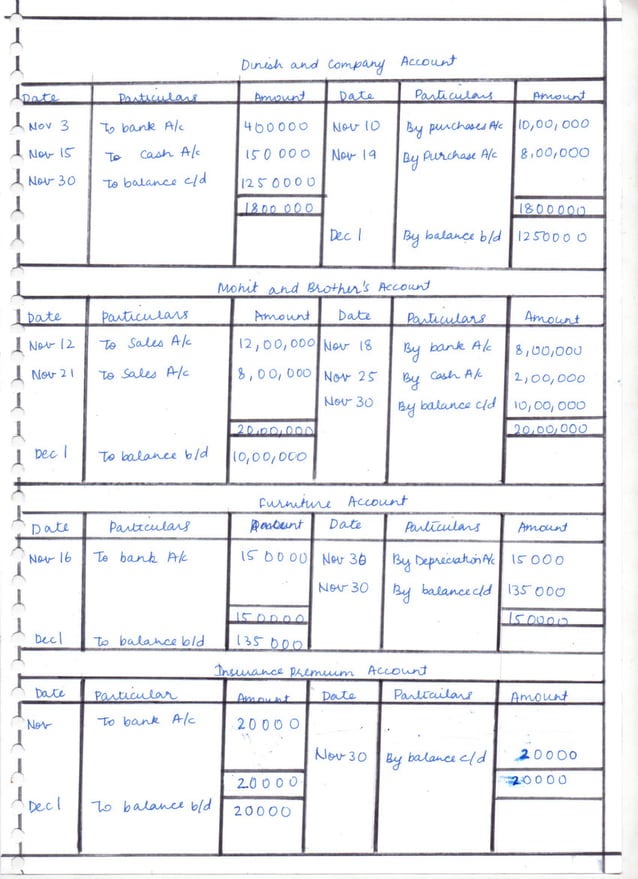 Dinish and Company Account
Date Particulars Amount Date Particulars Amount
Nov 3 To bank A/c 400000 Nov 10 By purchases A/c 10,00,000
Nov 15 To Cash A/c 150000 Nov 19 By Purchase A/c 8,00,000
Nov 30 To balance c/d 1250000
1800000 1800000
Dec 1 By balance b/d 1250000
Mohit and Brother's Account
Date Particulars Amount Date Particulars Amount
Nov 12 To Sales A/c 12,00,000 Nov 18 By bank A/c 8,00,000
Nov 21 To Sales A/c 8,00,000 Nov 25 By Cash A/c 2,00,000
Nov 30 By balance c/d 10,00,000
20,00,000 20,00,000
Dec 1 To balance b/d 10,00,000
Furniture Account
Date Particulars Amount Date Particulars Amount
Nov 16 To bank A/c 150000 Nov 30 By Depreciation A/c 15000
Nov 30 By balance c/d 135000
150000 150000
Dec 1 To balance b/d 135000
Insurance Premium Account
Date Particular Amount Date Particulars Amount
Nov To bank A/c 20000
Nov 30 By balance c/d 20000
20000 20000
Dec 1 To balance b/d 20000